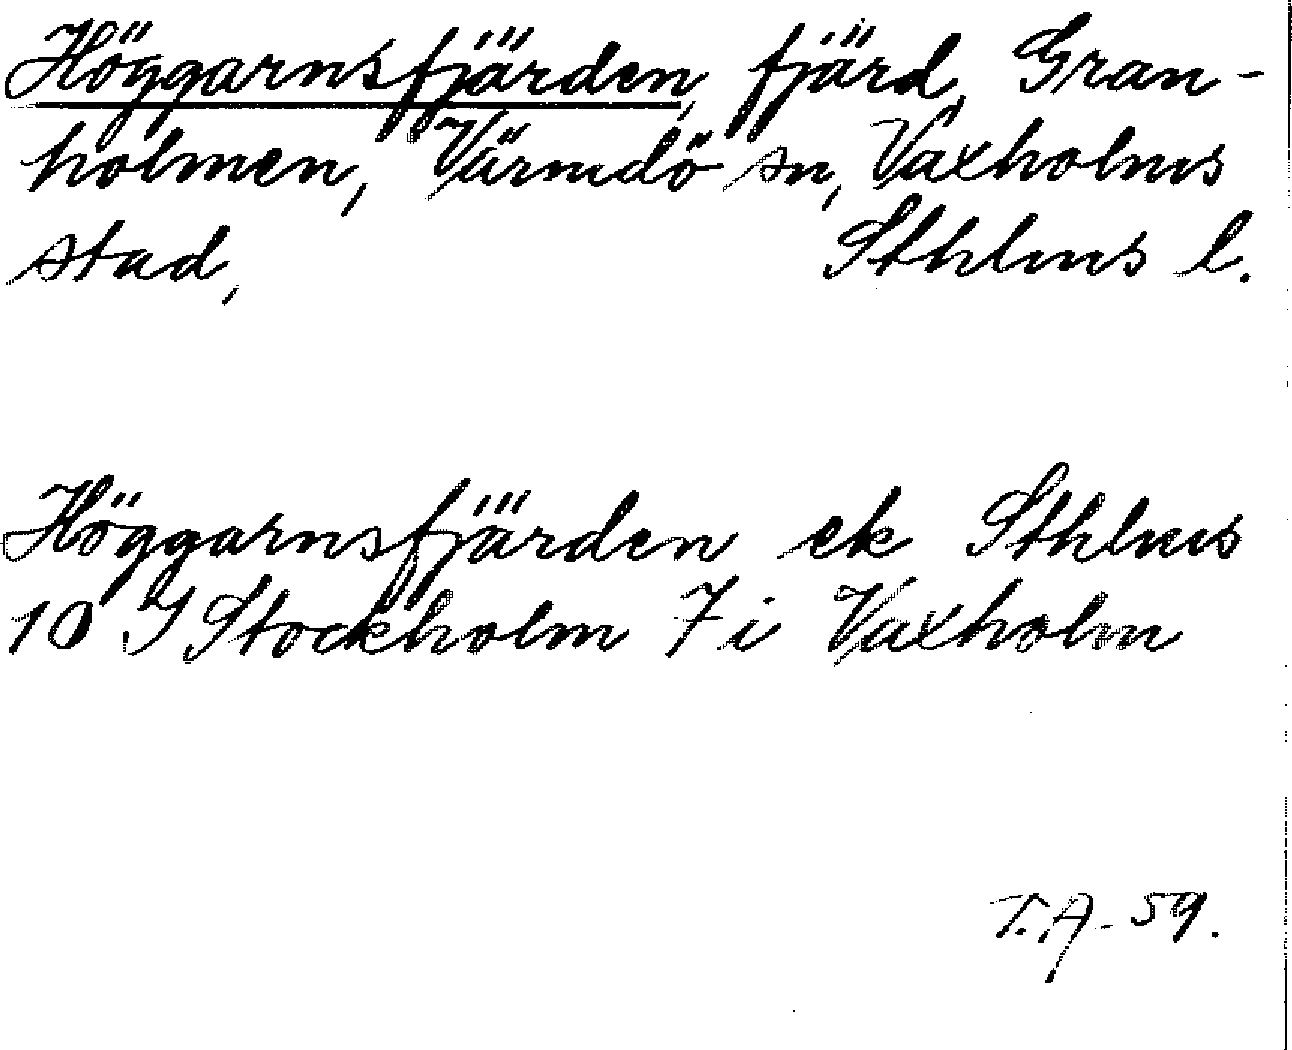 Höggarnsfjärden, fjärd, Gran-
holmen, Värmdö sn, Vaxholms
stad, Sthlms l.
Höggarnsfjärden ek Sthlms
10 I Stockholm 7 i Vaxholm
T.A. 59.